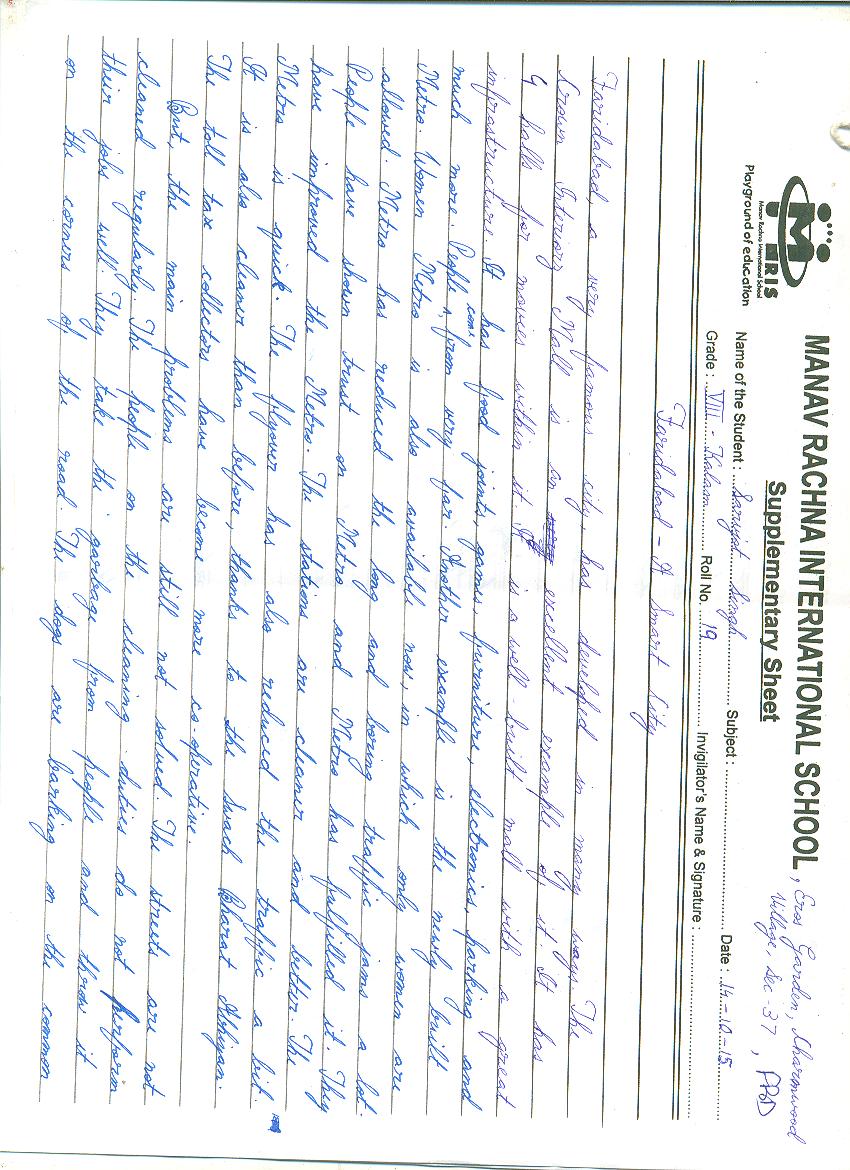 MANAV RACHNA INTERNATIONAL SCHOOL, Eros Garden, Charmwood
Village, Sec-37, FBD
Supplementary Sheet
MRIS
Manav Rachna International School
Playground of education
Name of the Student : Sarvjot Singh Subject : Date : 14-10-15
Grade : VIII - Kalam Roll No. 19 Invigilator's Name & Signature :
Faridabad - A Smart City
Faridabad, a very famous city, has developed in many ways. The
Crown Interiorz Mall is an excellent example of it. It has
4 halls for movies within it. It is a well-built mall with a great
infrastructure. It has food joints, games, furniture, electronics, parking and
much more. People come from very far. Another example is the newly built
Metro. Women Metro is also available now, in which only women are
allowed. Metro has reduced the long and boring traffic jams a lot.
People have shown trust on Metro and Metro has fulfilled it. They
have improved the Metro. The stations are cleaner and better. The
Metro is quick. The flyover has also reduced the traffic a bit.
It is also cleaner than before, thanks to the Swach Bharat Abhiyan.
The toll tax collectors have become more co-operative.
But, the main problems are still not solved. The streets are not
cleaned regularly. The people on the cleaning duties do not perform
their jobs well. They take the garbage from people and throw it
on the corners of the road. The dogs are barking on the common